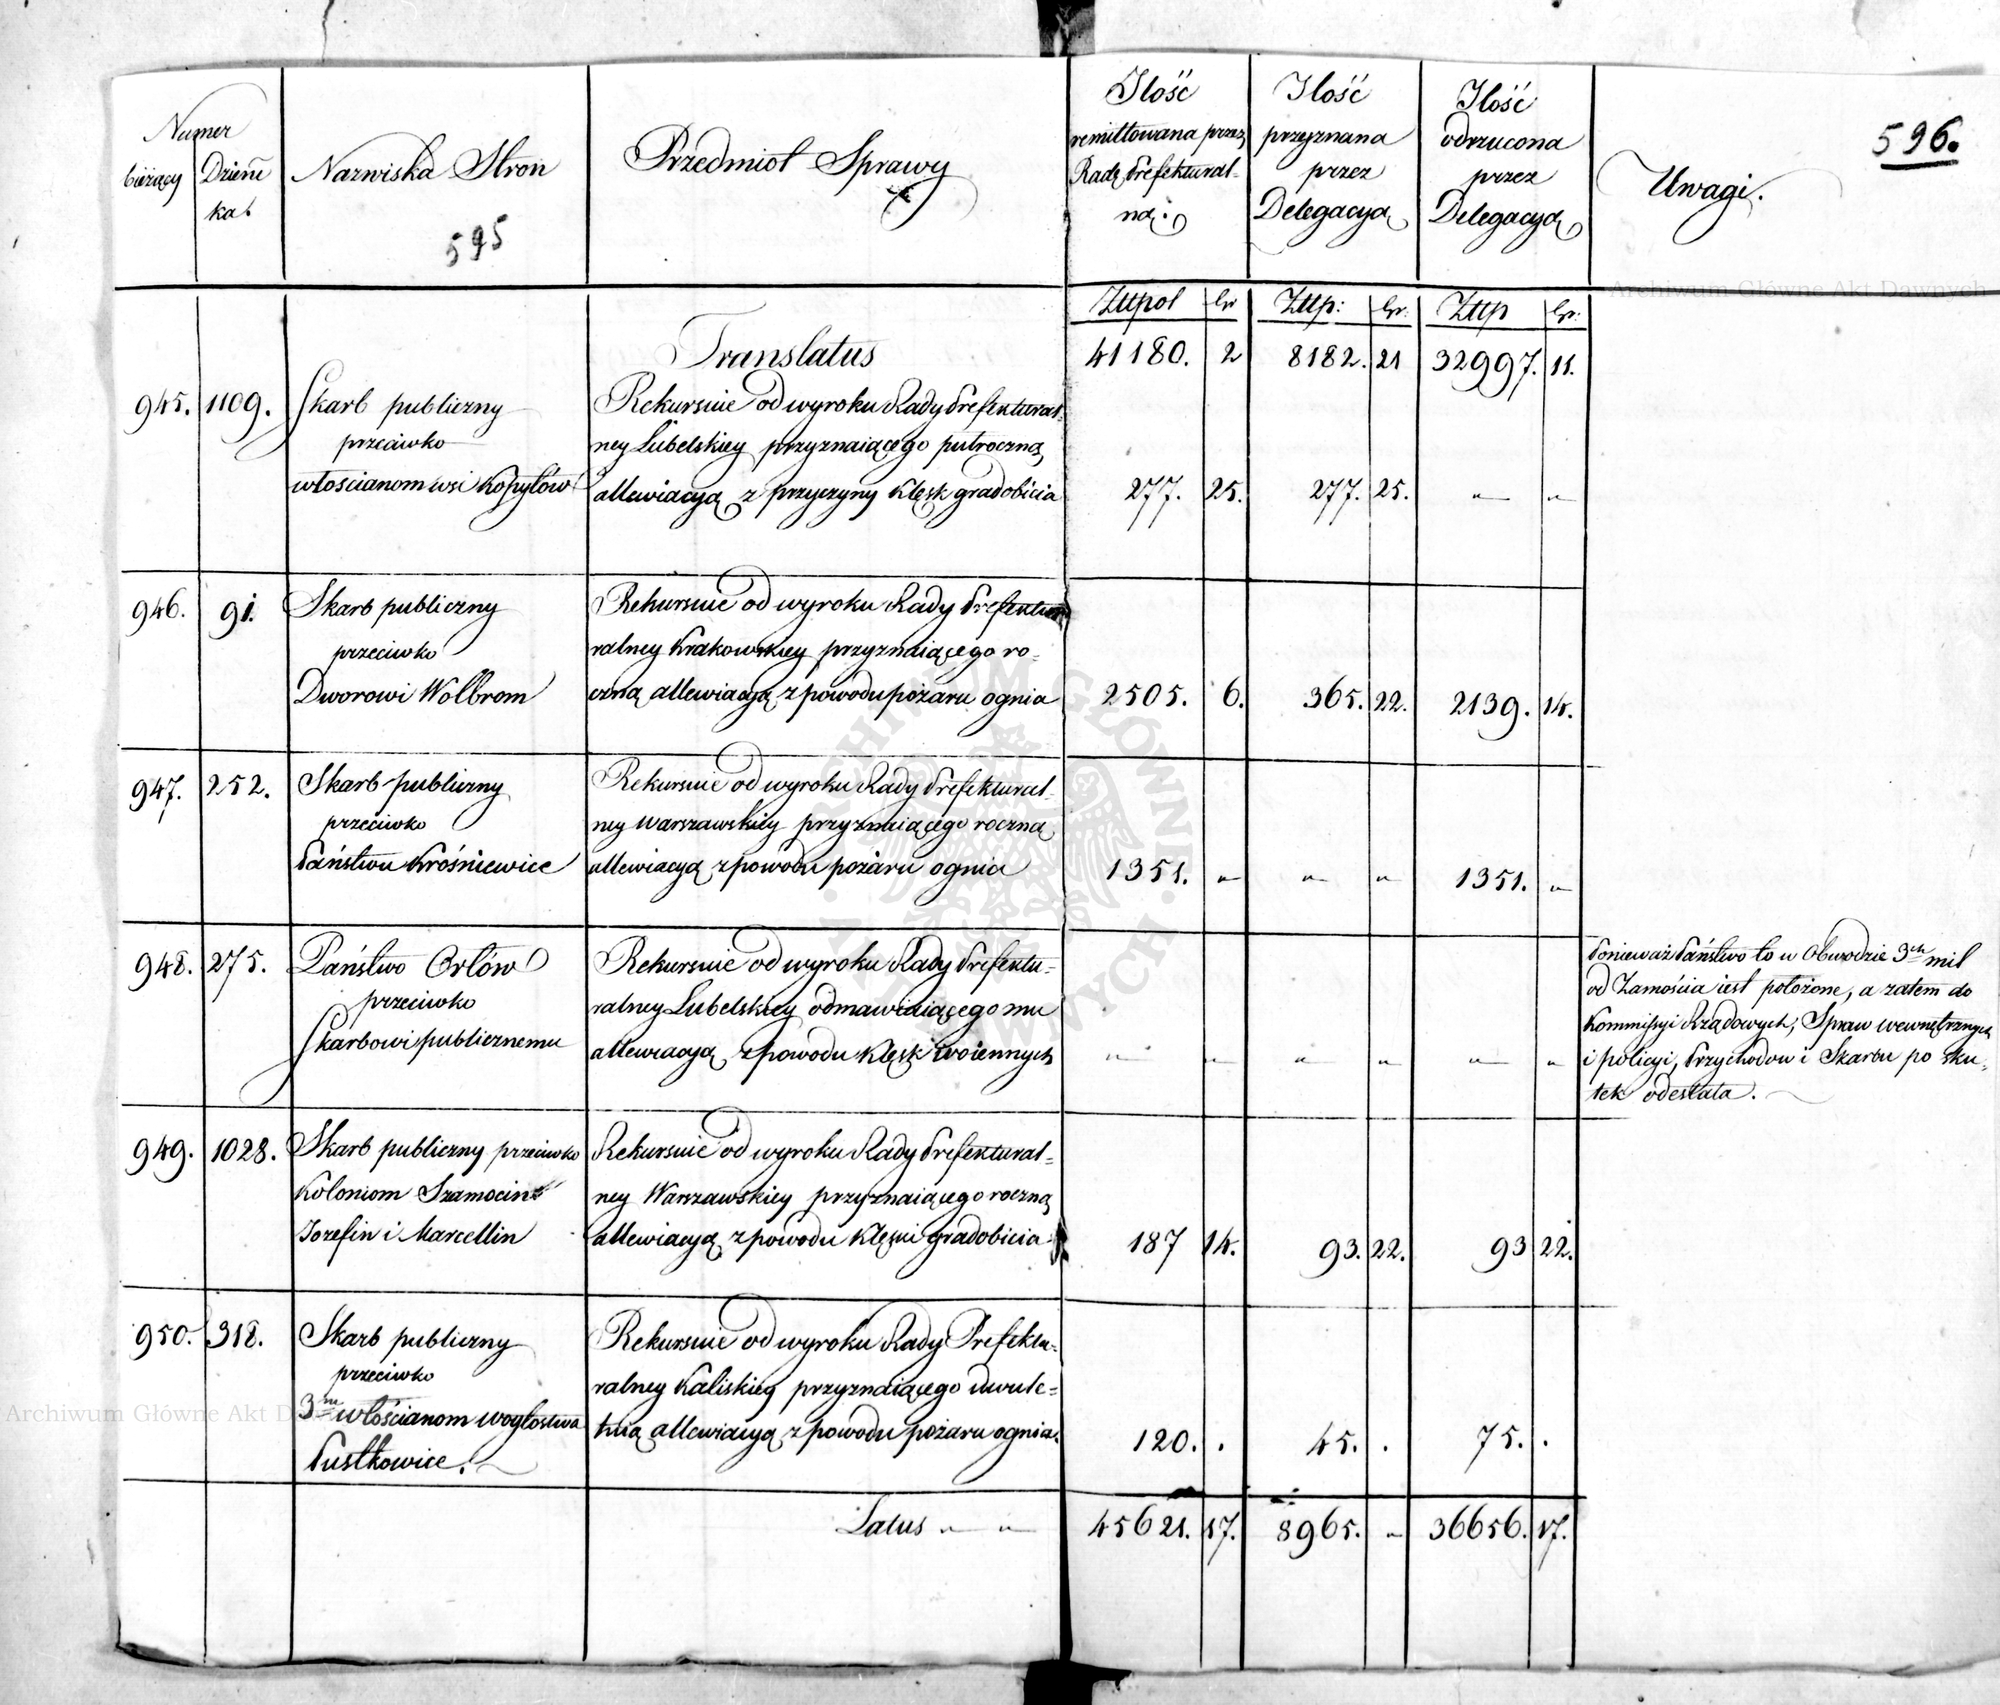 Numer
bieżący Dzienni
ka.
Nazwiska Stron
595
Przedmiot Sprawy
Ilość
remittowana przez
Radę Prefektural-
ną.
Ilość
przyznana
przez
Delegacyą
Ilość
odrzucona
przez
Delegacyą
Uwagi.
596.
Archiwum Główne Akt Dawnych
Złłpol Gr Złłp: Gr: Złłp Gr:
Translatus 41180. 2 8182. 21 32997. 11.
945. 1109.
Skarb publiczny
przeciwko
włościanom wsi Kopyłów
Rekursuie od wyroku Rady Prefektural-
ney Lubelskiey przyznaiącego pułroczną
allewiacyą z przyczyny klęsk gradobicia
277. 25. 277. 25. — "
946. 91.
Skarb publiczny
przeciwko
Dworowi Wolbrom
Rekursuie od wyroku Rady Prefektu
ralney Krakowskiey przyznaiącego ro-
czną allewiacyą z powodu pożaru ognia
2505. 6. 365. 22. 2139. 14.
947. 252.
Skarb publiczny
przeciwko
Państwu Krośniewice
Rekursuie od wyroku Rady Prefektural-
ney Warszawskiey przyznaiącego roczną
allewiacyą z powodu pożaru ognia
1351. " " " 1351. "
948. 275.
Państwo Orłów
przeciwko
Skarbowi publicznemu
Rekursuie od wyroku Rady Prefektu-
ralney Lubelskiey odmawiaiącego mu
allewiacyą z powodu klęsk woiennych
" " " " " "
Ponieważ Państwo to w Obwodzie 3ch mil
od Zamościa iest położone, a zatem do
Kommissyi Rządowych, Spraw wewnętrznych
i policyi, Przychodow i Skarbu po sku-
tek odesłała.
949. 1028.
Skarb publiczny przeciwko
Koloniom Szamocin
Jozefin i Marcellin
Rekursuie od wyroku Rady Prefektural-
ney Warszawskiey przyznaiącego roczną
allewiacyą z powodu klęski gradobicia
187 14. 93. 22. 93 22.
950. 318.
Skarb publiczny
przeciwko
3m włościanom woytostwa
Pustkowice.
Rekursuie od wyroku Rady Prefektu-
ralney Kaliskiey przyznaiącego dwule-
tnią allewiacyą z powodu pożaru ognia.
120. . 45. . 75. .
Archiwum Główne Akt D
Latus " " 45621. 17. 8965. " 36656. 17.